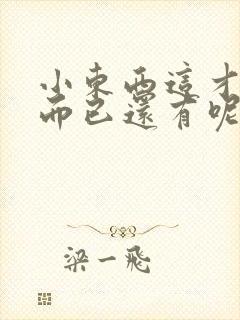 小東西這才
而已還有呢
梁一飛